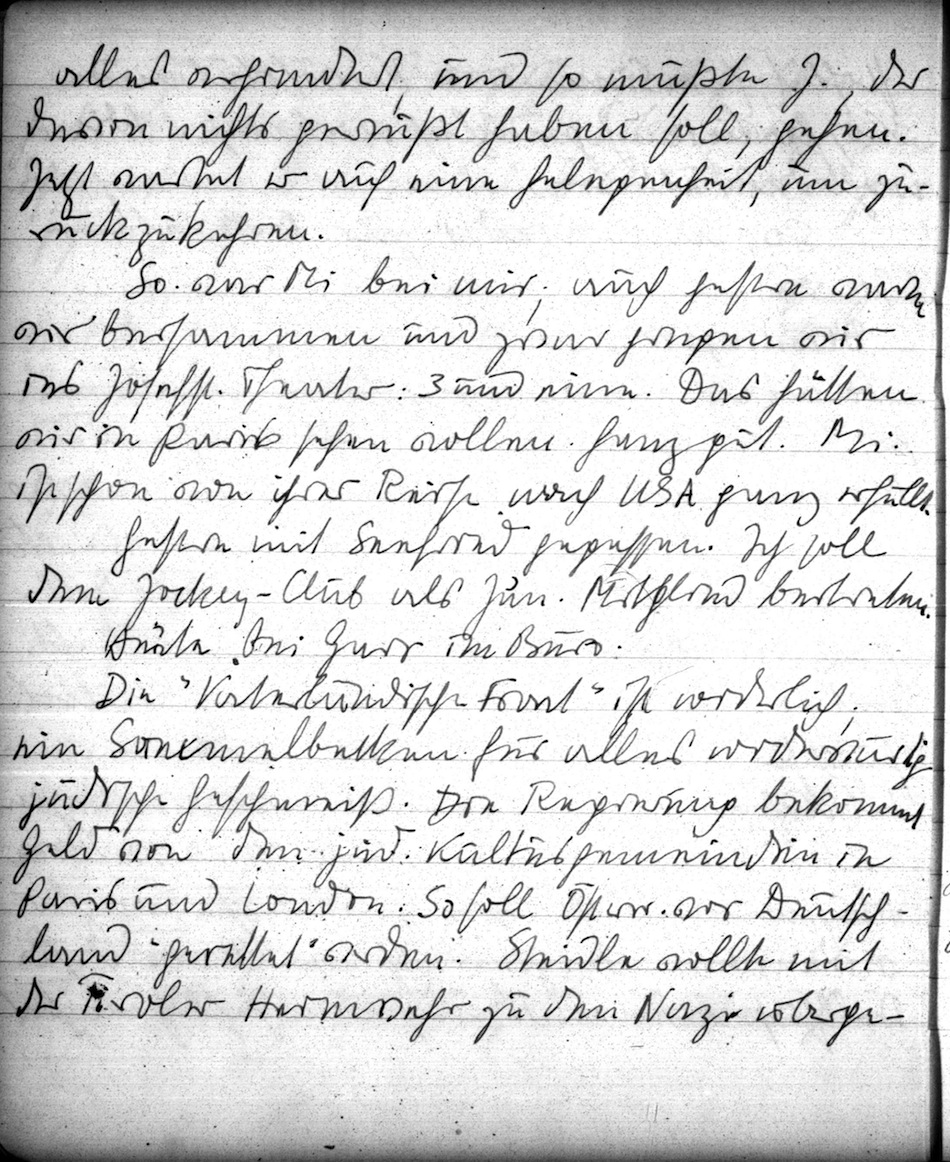 alles und so mußte J., der
davon nichts gewußt haben soll, gehen.
Jetzt wartet er auf eine Gelegenheit, um zu-
rückzukehren.
So. war Mi bei mir, auch gestern waren
wir beisammen und zwar gingen wir
ins Josefst. Theater: 3 und eine. Das hätten
wir in Paris sehen wollen. Ganz gut. Mi.
ist schon von ihrer Reise nach USA ganz erfüllt.
Gestern mit gegessen. Ich soll
dem Jockey-Club als Jun. Mitglied beitreten.
Heute bei im Büro.
Die "Vaterländische Front" ist widerlich,
ein Sammelbecken für alles widerwärtig
jüdische Geschmeiß. Die Regierung bekommt
Geld von den jüd. Kultusgemeinden in
Paris und London. So soll Österr. vor Deutsch-
land "gerettet" werden. Steidle wollte mit
der Tiroler Heimwehr zu den Nazi überge-